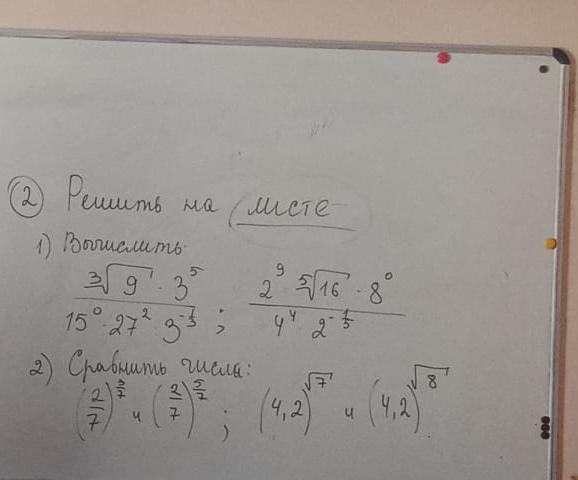 ② Решить на листе
1) Вычислить
∛9 · 3⁵ / 15⁰ · 27² · 3^(-1/3) ; 2⁹ · ⁵√16 · 8⁰ / 4⁴ · 2^(-1/5)
2) Сравнить числа:
(2/7)^(3/7) и (2/7)^(5/7) ; (4,2)^√7 и (4,2)^√8